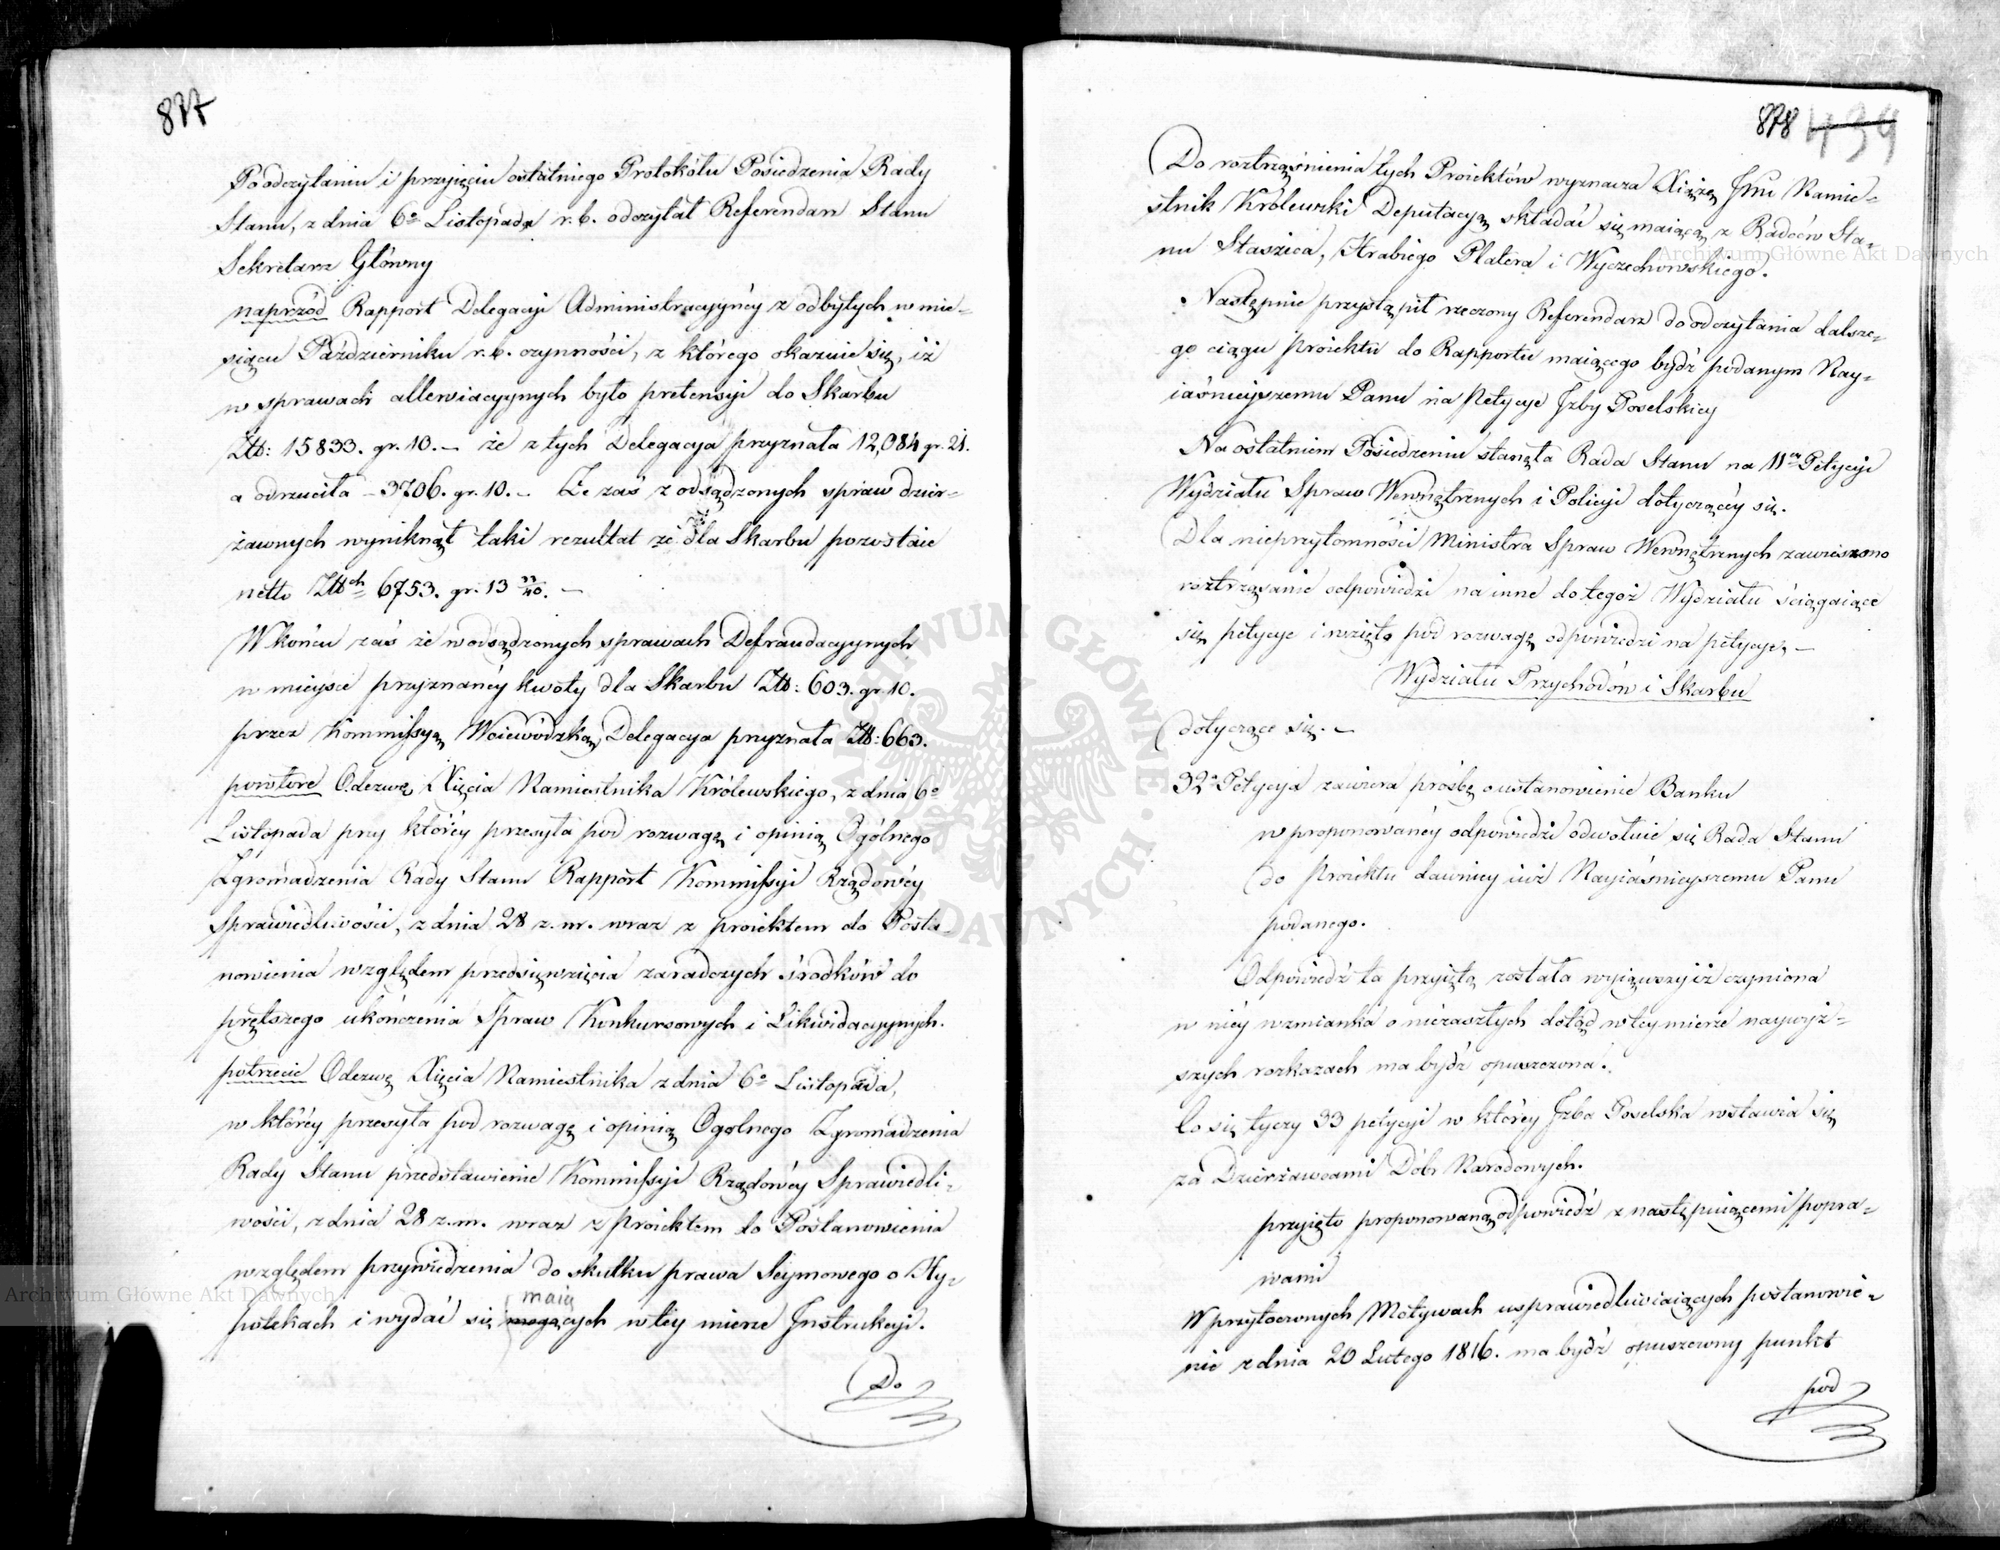 877
Po odczytaniu i przyjęciu ostatniego Protokółu Posiedzenia Rady
Stanu, z dnia 6º Listopada r. b. odczytał Referendarz Stanu
Sekretarz Główny
naprzód Rapport Delegacyi Administracyyney z odbytych w mie-
siącu Październiku r. b. czynności, z którego okazuie się, iż
w sprawach allewiacyynych było pretensyi do Skarbu
Złł: 15833. gr. 10. – że z tych Delegacya przyznała 12,084 gr. 21.
a odrzuciła – 3706. gr. 10. – Że zaś z odsądzonych spraw dzier-
żawnych wyniknął taki rezultat że dla Skarbu pozostaie
netto Złłch 6753. gr. 13 –
W końcu zaś że w odsądzonych sprawach Defraudacyynych
w mieysce przyznaney kwoty dla Skarbu Złł: 603. gr. 10.
przez Kommissyą Woiewódzką, Delegacya przyznała Złł: 663.
powtóre Odezwę Xięcia Namiestnika Królewskiego, z dnia 6º
Listopada przy którey przesyła pod rozwagę i opinią Ogólnego
Zgromadzenia Rady Stanu Rapport Kommissyi Rządowey
Sprawiedliwości, z dnia 28 z. m. wraz z proiektem do Posta-
nowienia względem przedsięwzięcia zaradczych środków do
prętszego ukończenia Spraw Konkursowych i Likwidacyynych.
potrzecie Odezwę Xięcia Namiestnika z dnia 6º Listopada,
w którey przesyła pod rozwagę i opinią Ogolnego Zgromadzenia
Rady Stanu przedstawienie Kommissyi Rządowey Sprawiedli-
wości, z dnia 28 z. m. wraz z Proiektem do Postanowienia
względem przywiedzenia do skutku prawa Seymowego o Hy-
maią
potekach i wydać się mogących w tey mierze Instrukcyi.
Do
878 439
Do roztrząśnienia tych Proiektów wyznacza Xiążę Jmć Namie-
stnik Królewski Deputacyą składać się maiącą z Radców Sta-
nu Staszica, Hrabiego Platera i Wyczechowskiego.
Następnie przystąpił rzeczony Referendarz do odczytania dalsze-
go ciągu proiektu do Rapportu maiącego bydź podanym Nay-
iaśnieyszemu Panu na Petycye Izby Poselskiey
Na ostatniem Posiedzeniu stanęła Rada Stanu na 11ey Petycyi
Wydziału Spraw Wewnętrznych i Policyi dotyczącey się.
Dla nieprzytomności Ministra Spraw Wewnętrznych zawieszono
roztrząsanie odpowiedzi na inne do tegoż Wydziału ściągaiące
się petycye i wzięto pod rozwagę odpowiedzi na petycye, –
Wydziału Przychodów i Skarbu
dotyczące się. –
32ª Petycya zawiera prośbę o ustanowienie Banku
w proponowaney odpowiedzi odwołuie się Rada Stanu
do Proiektu dawniey iuż Nayiaśnieyszemu Panu
podanego.
Odpowiedź ta przyięta została wyiąwszy iż czyniona
w niey wzmianka o niezaszłych dotąd w tey mierze naywyż-
szych rozkazach ma bydź opuszczona.
Co się tyczy 33 petycyi w którey Izba Poselska wstawia się
za Dzierżawcami Dóbr Narodowych.
przyięto proponowaną odpowiedź z następuiącemi popra-
wami
W przytoczonych Motywach usprawiedliwiaiących postanowie-
nie z dnia 20 Lutego 1816. ma bydź opuszczony punkt
pod
Archiwum Główne Akt Dawnych
Archiwum Główne Akt Dawnych
ARCHIWUM GŁÓWNE AKT DAWNYCH